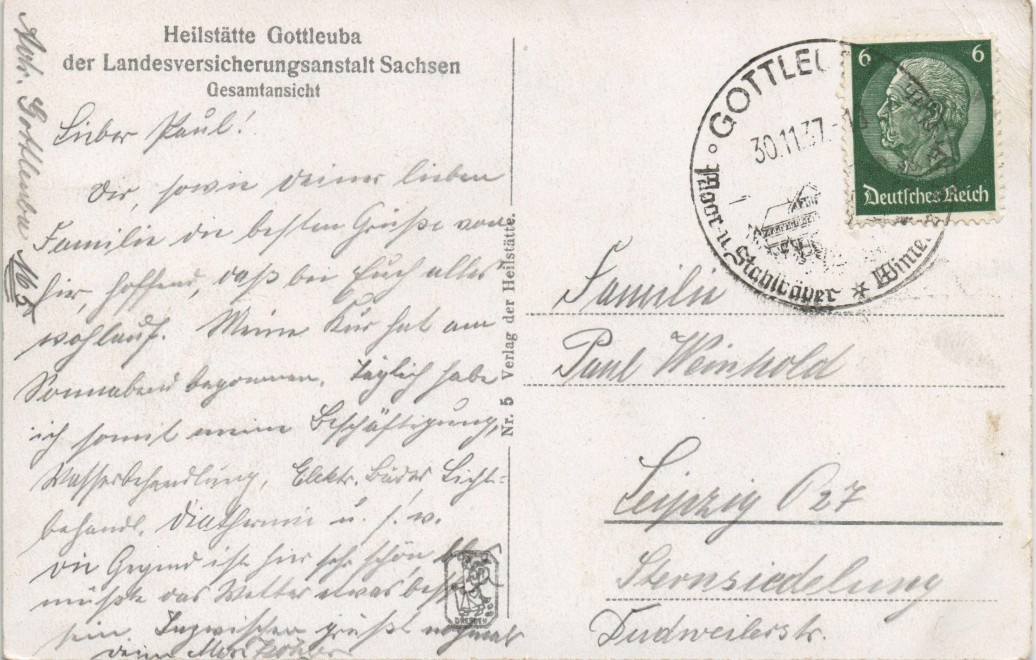 Heilstätte Gottleuba
der Landesversicherungsanstalt Sachsen
Gesamtansicht
Lieber Paul!
Dir, sowie deiner lieben
Familie die besten Grüße von
hier, hoffend, daß bei Euch alles
wohlauf. Meine Kur hat am
Sonnabend begonnen. Täglich habe
ich somit meine Beschäftigung,
Wasserbehandlung, Elektr. Bäder Licht-
behandl. Diathermie u. s. w.
Die Gegend ist hier sehr schön bloß
müßte das Wetter etwas besser
sein. Inzwischen grüßt nochmals
dein
Gottleuba
Nr. 5 Verlag der Heilstätte.
DRESDEN
GOTTLEU
30.11.37.
Moor- u. Stahlbäder * Winter
6 6
Deutsches Reich
Familie
Paul Weinhold
Leipzig O 27
Sternsiedelung
Dudweilerstr.